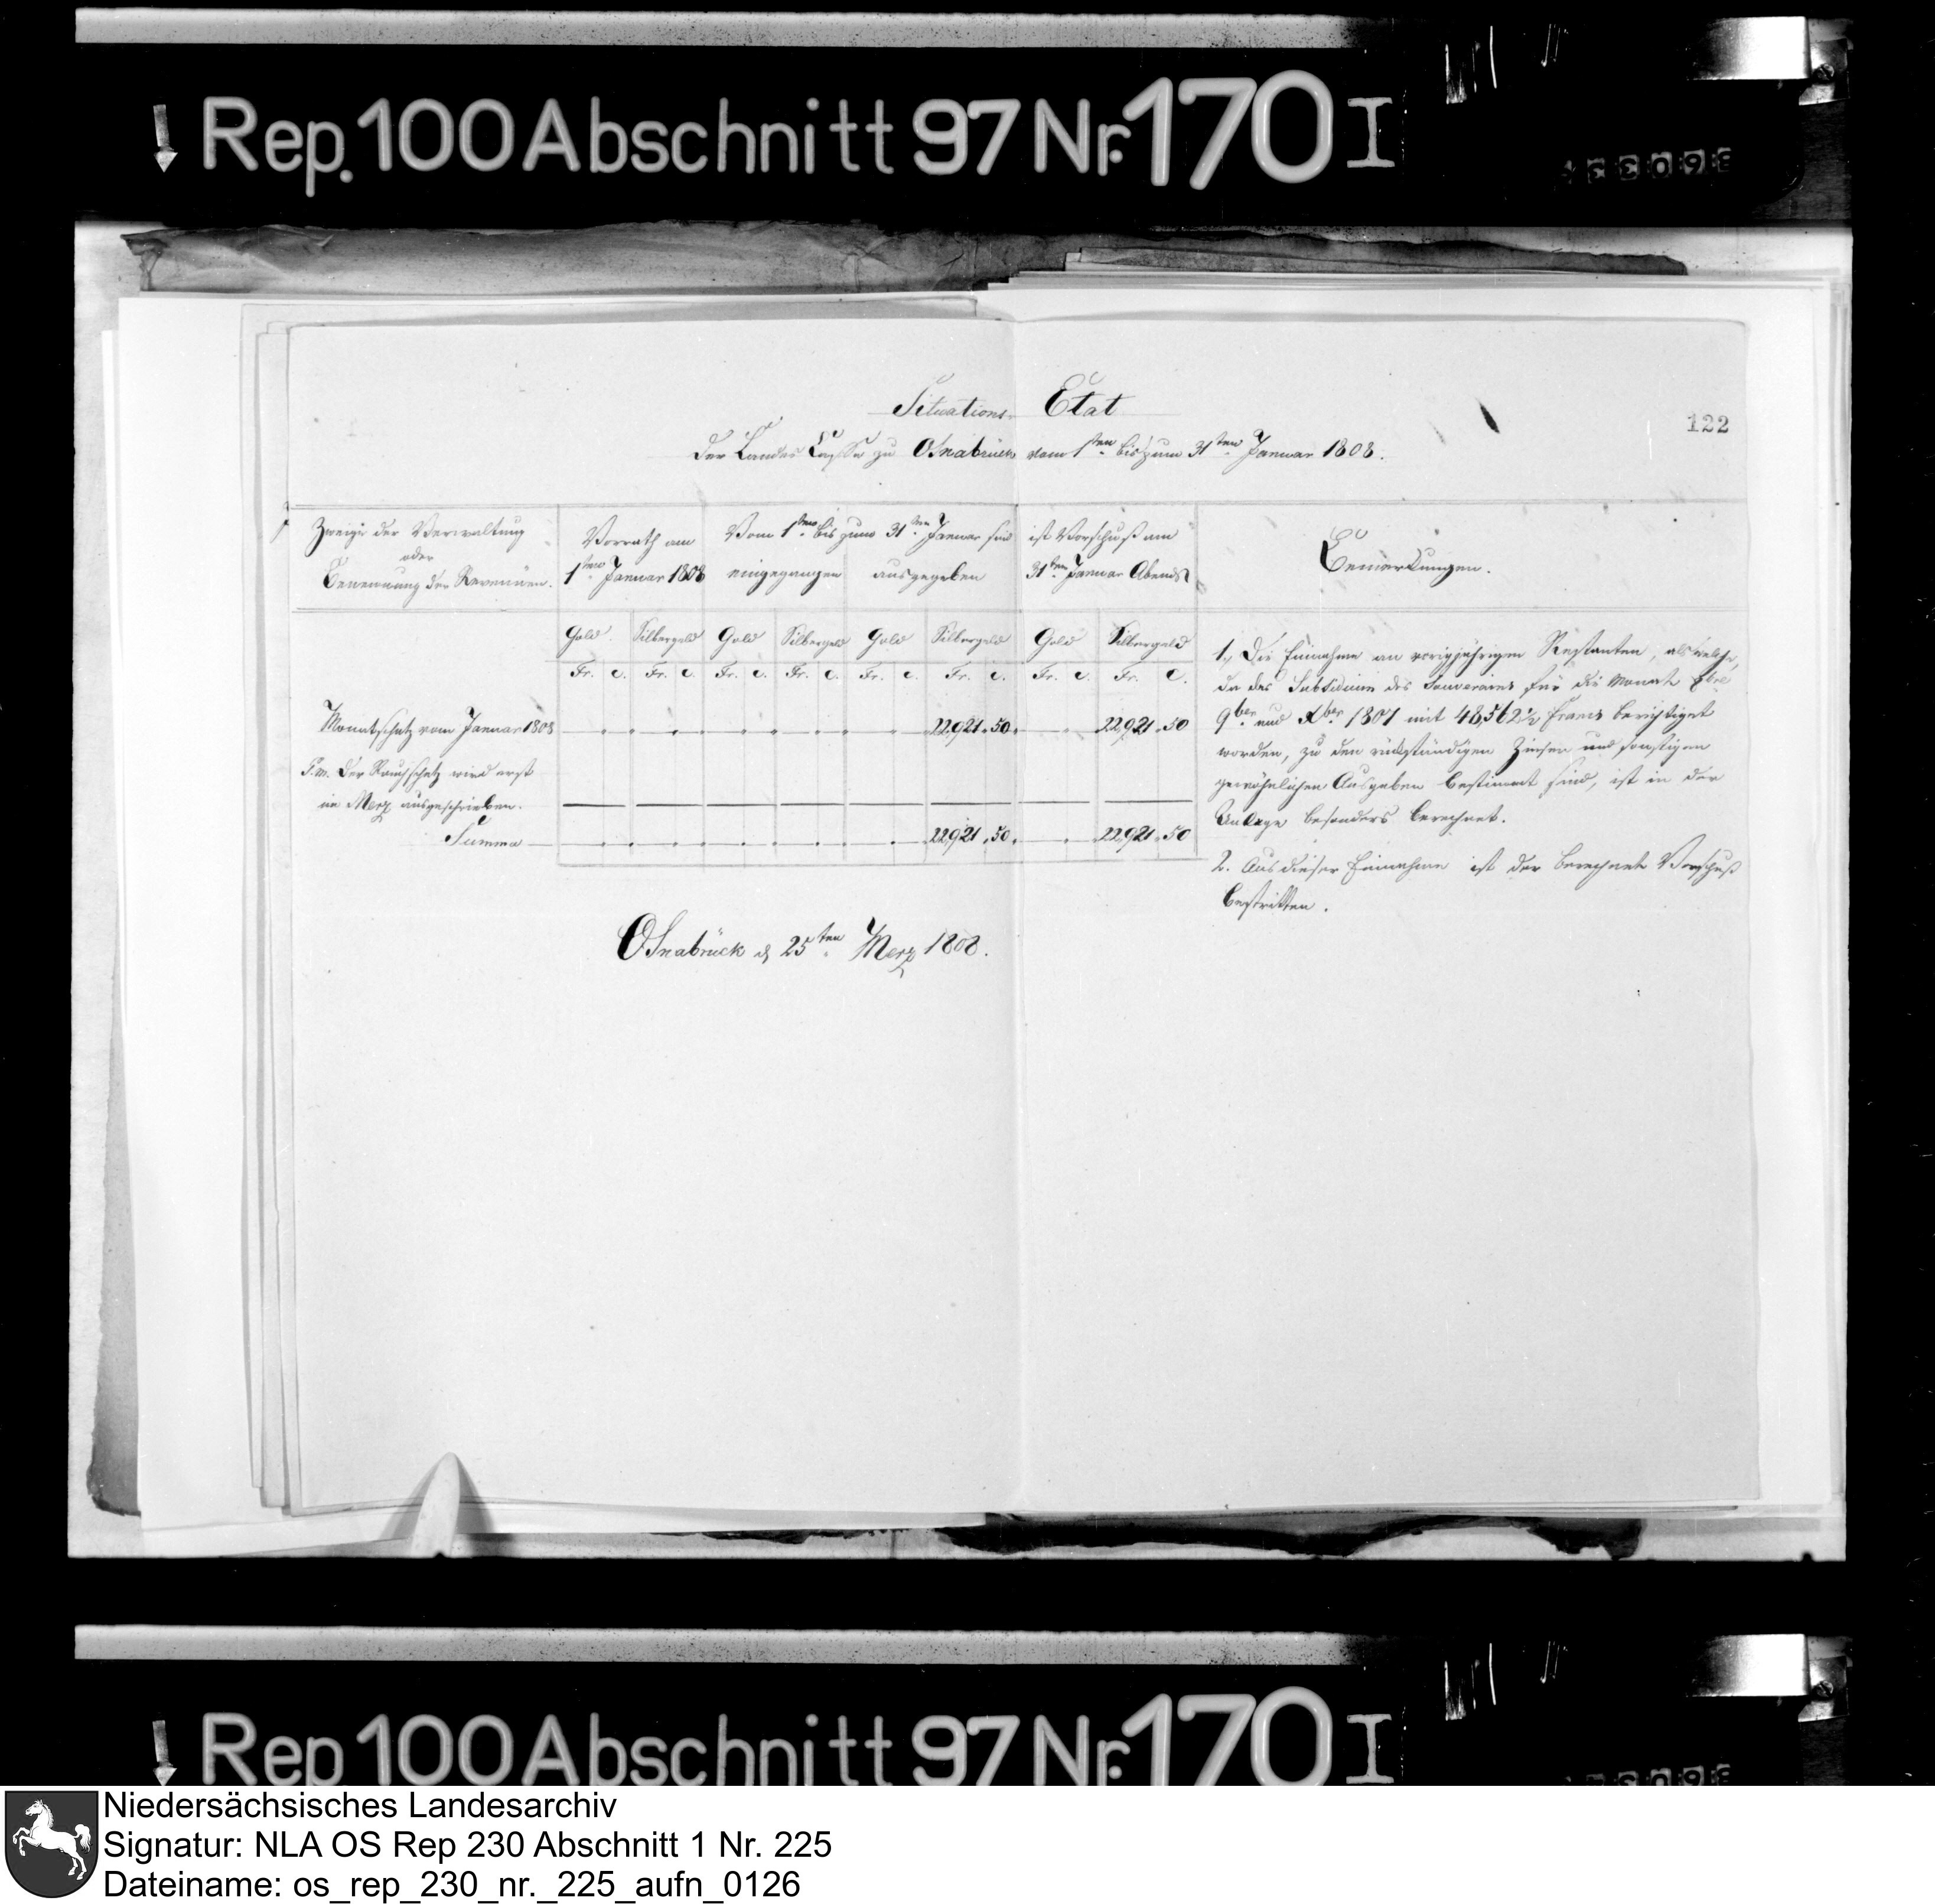 Rep. 100 Abschnitt 97 Nr. 170 I
122
Situations- Etat
der Landes Casse zu Osnabrück vom 1sten bis zum 31sten Januar 1808.
Zweige der Verwaltung
oder
Benennung der Revenüen.
Vorrath am
1sten Januar 1808
Vom 1sten bis zum 31sten Januar sind
eingegangen
ausgegeben
ist Vorschuß am
31sten Januar Abends
Bemerkungen.
Gold Silbergeld Gold Silbergeld Gold Silbergeld Gold Silbergeld
Fr. C. Fr. C. Fr. C. Fr. C. Fr. C. Fr. C. Fr. C. Fr. C.
Monatschatz vom Januar 1808 22,921. 50. 22,921. 50
Der Rauchschatz wird erst
im Merz ausgeschrieben.
Summa 22,921. 50. 22,921. 50
1., Die Einnahme an vorigjährigen Restanten, als welche,
da das Subsidium des Souverains für die Monate
9ber und Xber 1807 mit 48,562 1/2 Francs berichtiget
worden, zu den rückständigen Zinsen und sonstigen
gewöhnlichen Ausgaben bestimmt sind, ist in der
Anlage besonders berechnet.
2. Aus dieser Einnahme ist der berechnete Vorschuß
bestritten.
Osnabrück d. 25ten Merz 1808.
Rep 100 Abschnitt 97 Nr. 170 I
Niedersächsisches Landesarchiv
Signatur: NLA OS Rep 230 Abschnitt 1 Nr. 225
Dateiname: os_rep_230_nr._225_aufn_0126